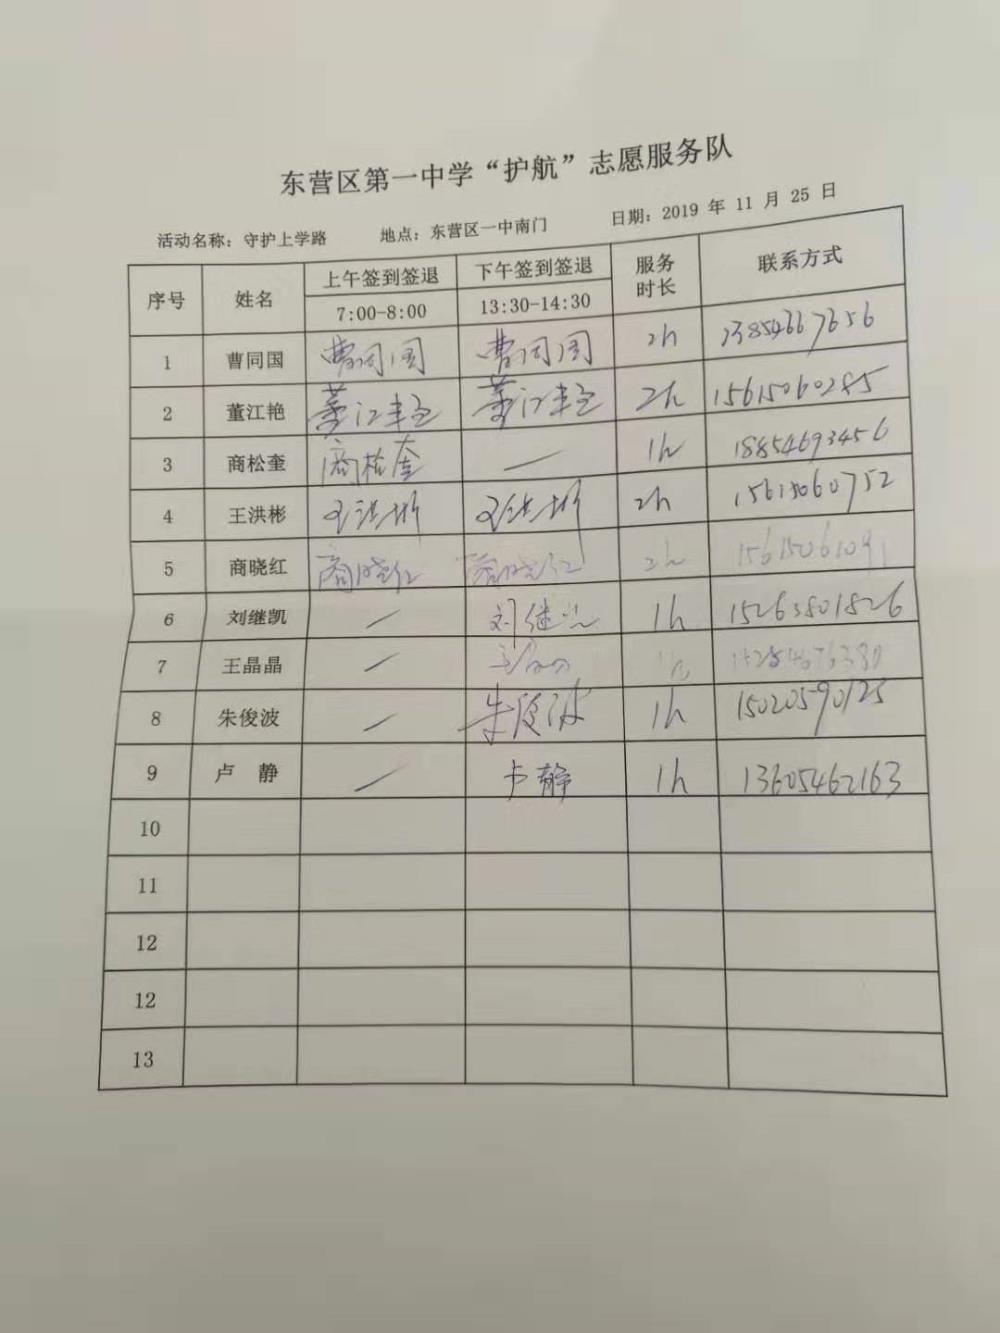 东营区第一中学“护航”志愿服务队
活动名称：守护上学路 地点：东营区一中南门 日期：2019 年 11 月 25 日
序号 姓名 上午签到签退 下午签到签退 服务时长 联系方式
7:00-8:00 13:30-14:30
1 曹同国 曹同国 曹同国 2h 13854667656
2 董江艳 董江艳 董江艳 2h 15615060285
3 商松奎 商松奎 — 1h 18854693456
4 王洪彬 王洪彬 王洪彬 2h 15615060752
5 商晓红 商晓红 商晓红 2h 15615061091
6 刘继凯 — 刘继凯 1h 15263801826
7 王晶晶 — 王晶晶 1h
8 朱俊波 — 朱俊波 1h 15020590125
9 卢 静 — 卢静 1h 13605462163
10
11
12
12
13